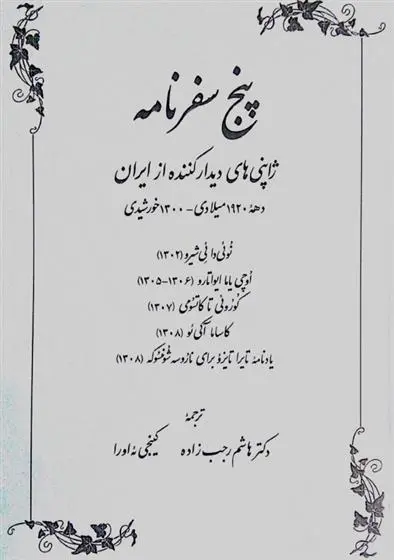 پنج سفرنامه
ژاپنی‌های دیدارکننده از ایران
دههٔ ۱۹۲۰ میلادی - ۱۳۰۰ خورشیدی
نُوئی دائی شیرو (۱۳۰۲)
اُوچی یاما ایواتارو (۱۳۰۶-۱۳۰۵)
کُورُونی تا کاتسومی (۱۳۰۷)
کاساما آکی ئو (۱۳۰۸)
یادنامهٔ تایرا تایزوُ برای نازوسه شُوئسُوکه (۱۳۰۸)
ترجمهٔ
دکتر هاشم رجب زاده کینجی ئه اورا